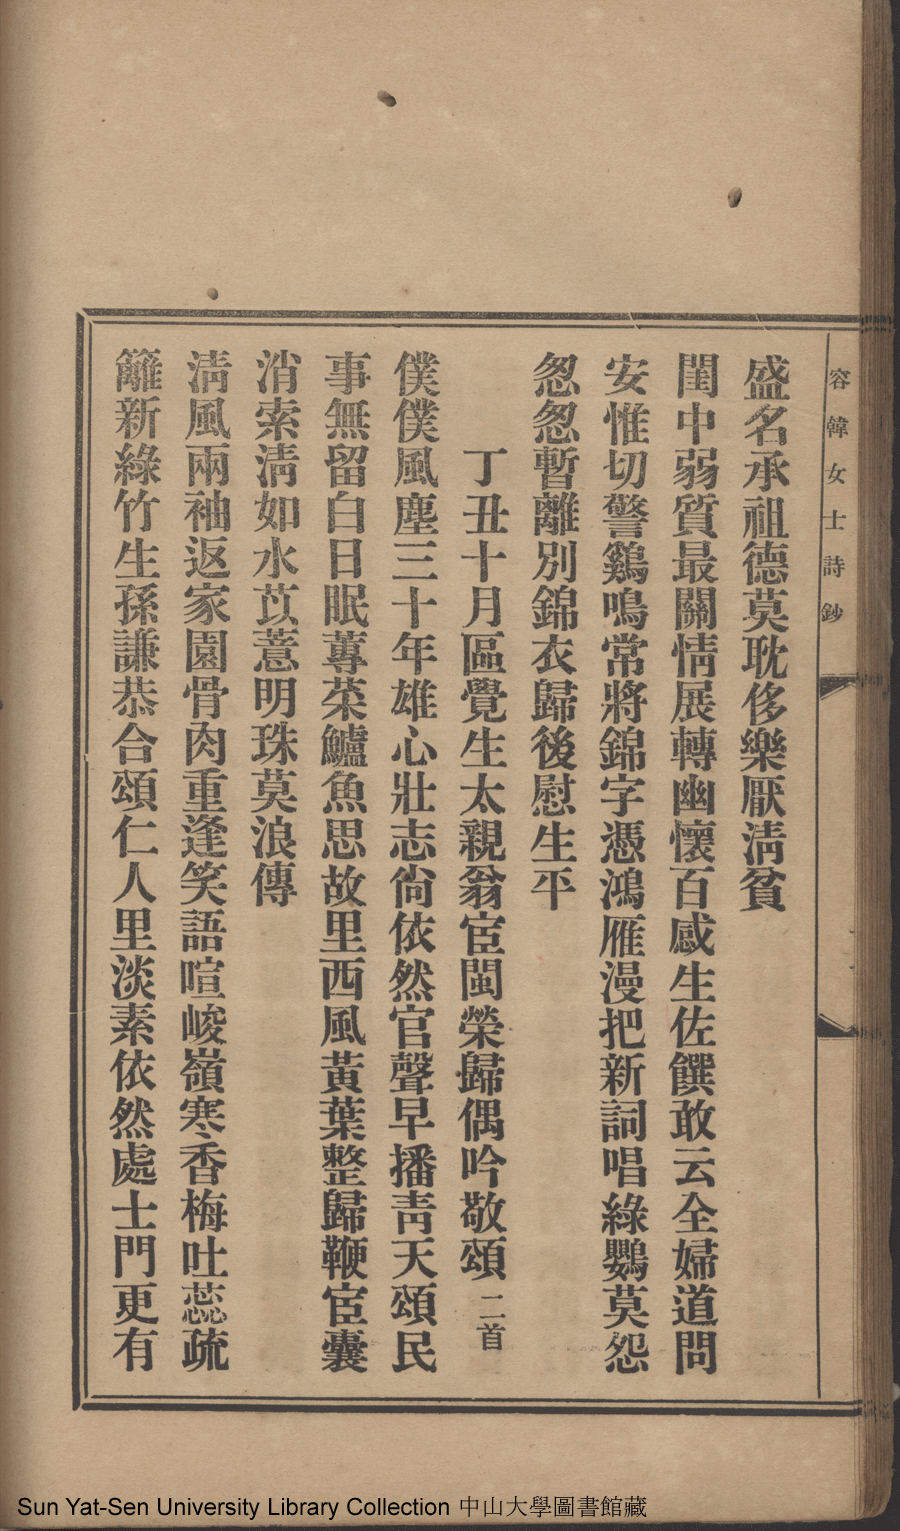 容韓女士詩鈔
盛名承祖德莫耽侈樂厭淸貧
閨中弱質最關情展轉幽懷百感生佐饌敢云全婦道問
安惟切警鷄鳴常將錦字憑鴻雁漫把新詞唱綠鸚莫怨
怱怱暫離別錦衣歸後慰生平
丁丑十月區覺生太親翁宦閩榮歸偶吟敬頌二首
僕僕風塵三十年雄心壯志尙依然官聲早播靑天頌民
事無留白日眠蓴菜鱸魚思故里西風黃葉整歸鞭宦囊
消索淸如水苡薏明珠莫浪傳
淸風兩袖返家園骨肉重逢笑語喧峻嶺寒香梅吐蕊疏
籬新綠竹生孫謙恭合頌仁人里淡素依然處士門更有
Sun Yat-Sen University Library Collection 中山大學圖書館藏